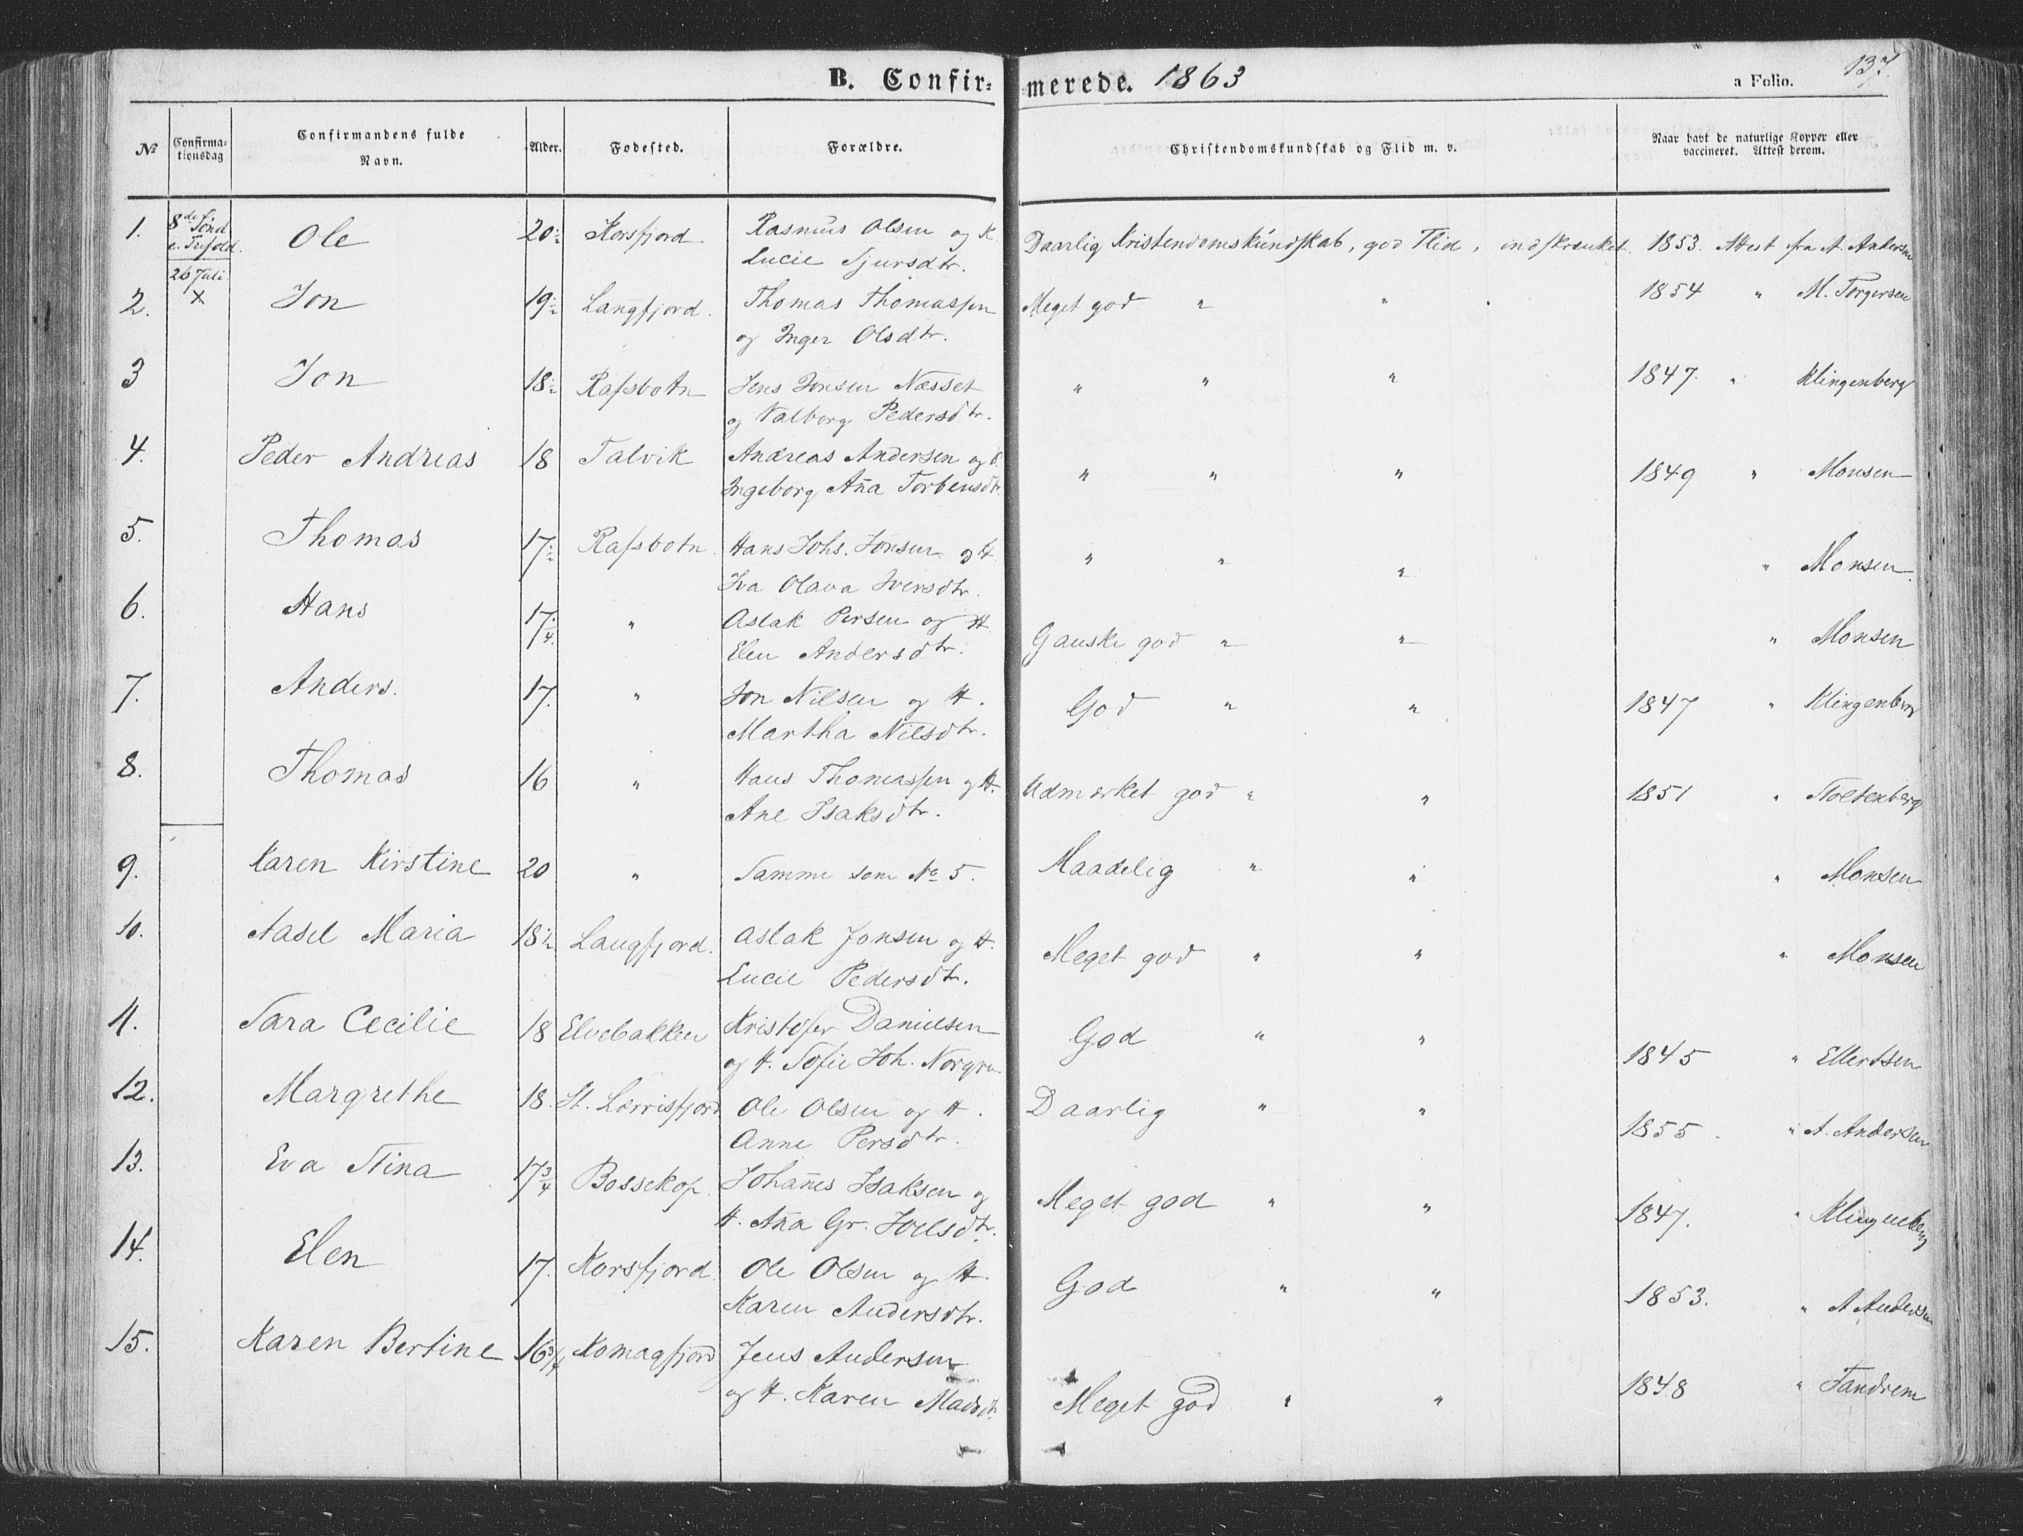 B. Confir= merede. 1863 a Folio. 137.
№ Confirma-tionsdag Confirmandens fulde Navn. Alder. Fodested. Forældre. Christendomskundskab og Flid m. v. Naar havt de naturlige Kopper eller vaccineret. Attest derom.
1. 8de Sønd. e. Trefold. Ole 20½ Korsfjord. Rasmus Olsen og K Daarlig Kristendomskundskab, god Flid, indskrænket. 1853. Attest fra A. Andersen
Lucie Sjursdtr.
26 Juli
2. X Jon 19½ Langfjord. Thomas Thomassen Meget god " " 1854 " M. Torgersen
og Inger Olsdtr.
3 Jon 18½ Rafsbotn Jens Jonsen Næsset " " " 1847. " Klingenberg
og Valborg Pedersdtr.
4. Peder Andreas 18 Talvik Andreas Andersen og " " " 1849 " Monsen
Ingeborg Aña Torbensdtr.
5. Thomas 17½ Rafsbotn. Hans Johs. Jonsen og H " " " " Monsen.
Iva Olava Iversdtr.
6. Hans 17¼. " Aslak Persen og H Ganske god " " " Monsen
Elen Andersdtr.
7. Anders. 17. " Jon Nilsen og H. God " " 1847 " Klingenberg
Martha Nilsdtr.
8. Thomas 16 " Hans Thomassen og H. Udmærket god " " 1851 " Stoltenberg
Ane Isaksdtr.
9. Karen Kirstine 20 " Samme som No 5. Maadelig " " " Monsen
10. Aasel Maria 18½ Langfjord. Aslak Jonsen og H. Meget god " " " Monsen
Lucie Pedersdtr.
11. Sara Cecilie 18 Elvebakken Kristofer Danielsen God " " 1845 " Ellertsen
og H. Sofie Joh. Norgren
12. Margrethe 18. St. Lærrisfjord Ole Olsen og H. Daarlig " " 1855. " A. Andersen
Anne Persdtr.
13. Eva Stina 17¾ Bossekop. Johañes Isaksen og Meget god " " 1847. " Klingenberg
H. Aña Gr. Joelsdtr.
14. Elen 17. Korsfjord. Ole Olsen og H. God " " 1853. " A Andersen
Karen Andersdtr.
15. Karen Bertine 16¾ Komagfjord Jens Andersen Meget god " " 1848 " Tandrem
og H. Karen Madsdtr.